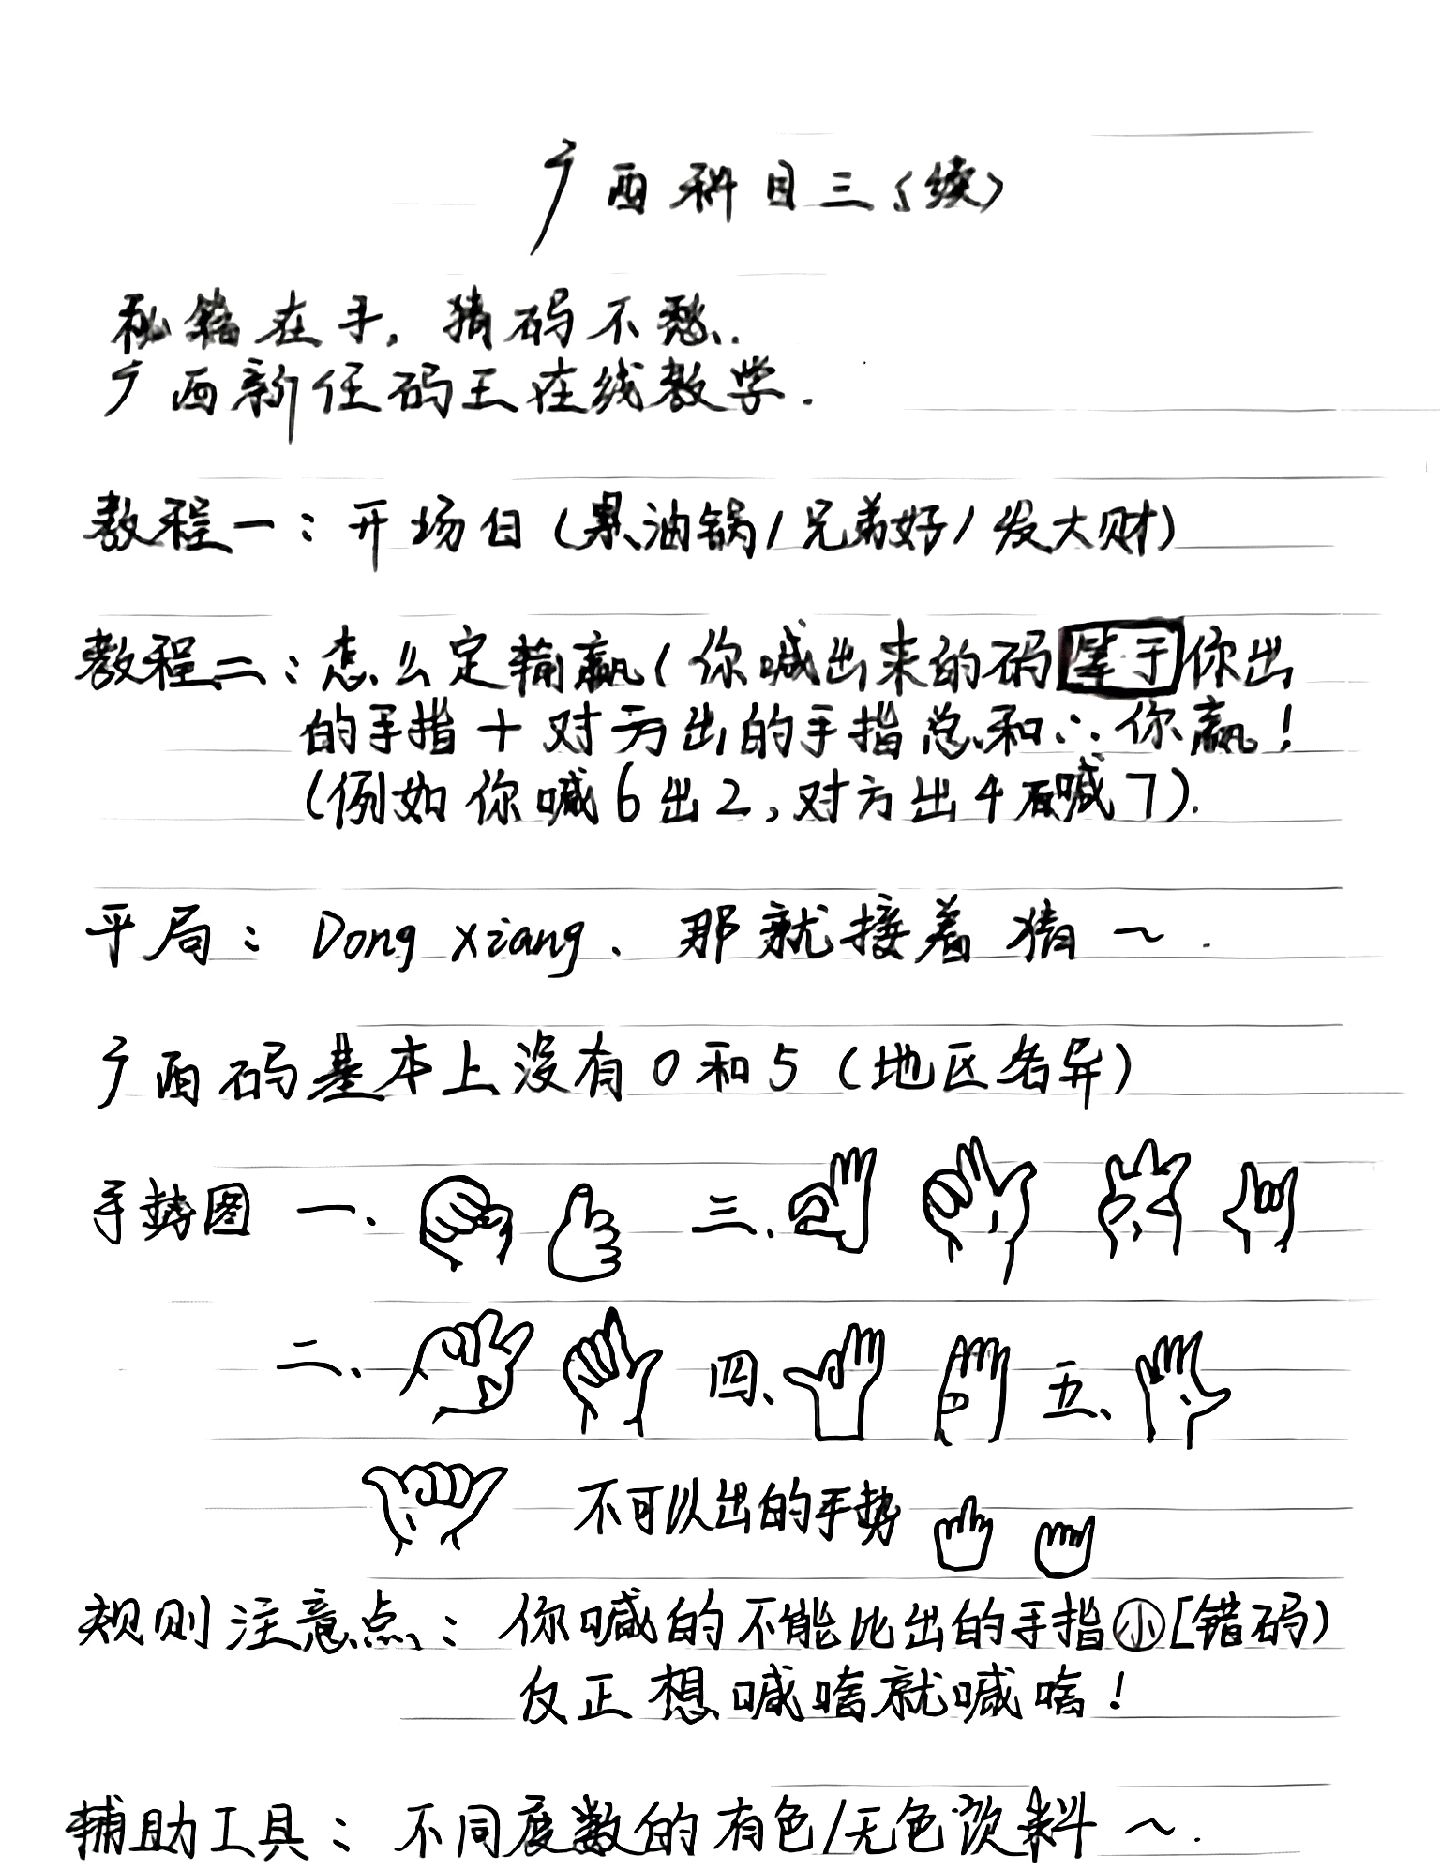 广西科目三(续)
秘籍在手,猜码不愁..
广西新任码王在线教学.
教程一:开场白(累油锅/兄弟好/发大财)
教程二:怎么定输赢(你喊出来的码等于你出
的手指+对方出的手指总和∴你赢!
(例如你喊6出2,对方出4而喊7).
平局:Dong xiang、那就接着猜~.
广西码基本上没有0和5(地区各异)
手势图 一、 三、
二、 四、 五、
不可以出的手势
规则注意点:你喊的不能比出的手指小[错码)
反正想喊啥就喊啥!
辅助工具:不同度数的有色/无色饮料~.